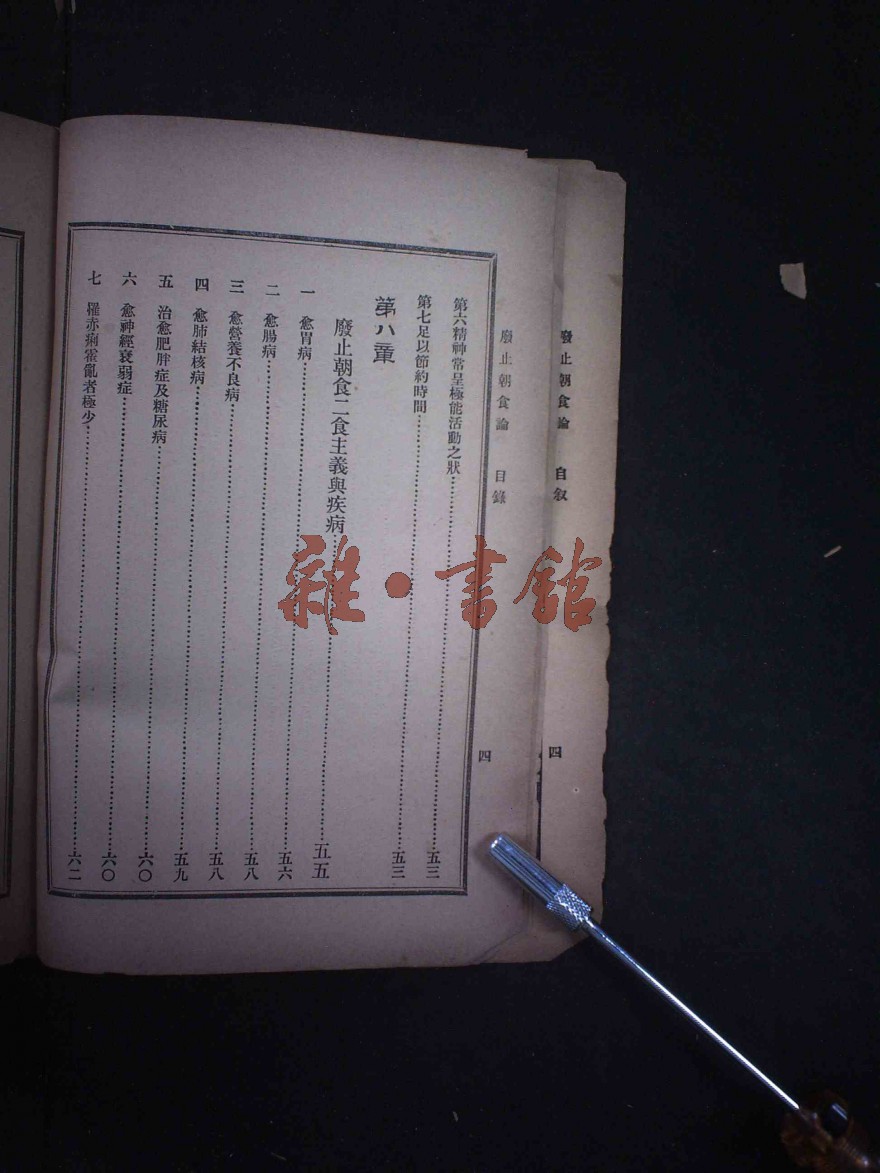 廢止朝食論　自叙　四
廢止朝食論　目錄　四
第六精神常呈極能活動之狀……五三
第七足以節約時間……五三
第八章
廢止朝食二食主義與疾病……五五
一　愈胃病……五六
二　愈腸病……五八
三　愈營養不良病……五八
四　愈肺結核病……五九
五　治愈肥胖症及糖尿病……六〇
六　愈神經衰弱症……六〇
七　罹赤痢霍亂者極少……六二
雜·書館